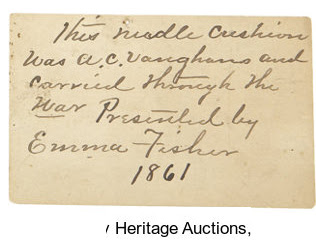 This needle cushion
was A.C. Vaughans and
carried through the
War Presented by
Emma Fisher
1861
Heritage Auctions,